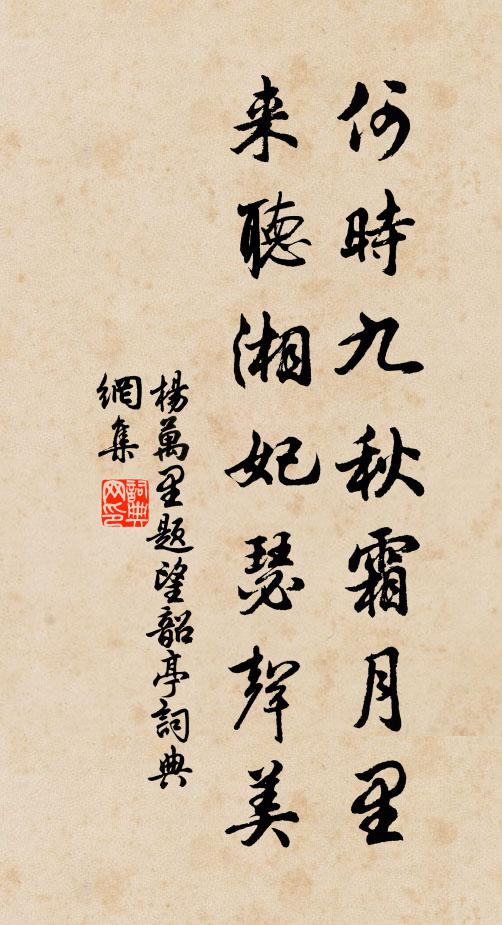 何時九秋霜月里
来聽湘妃瑟聲美
楊萬里題望韶亭詞典
網集
詞典网印